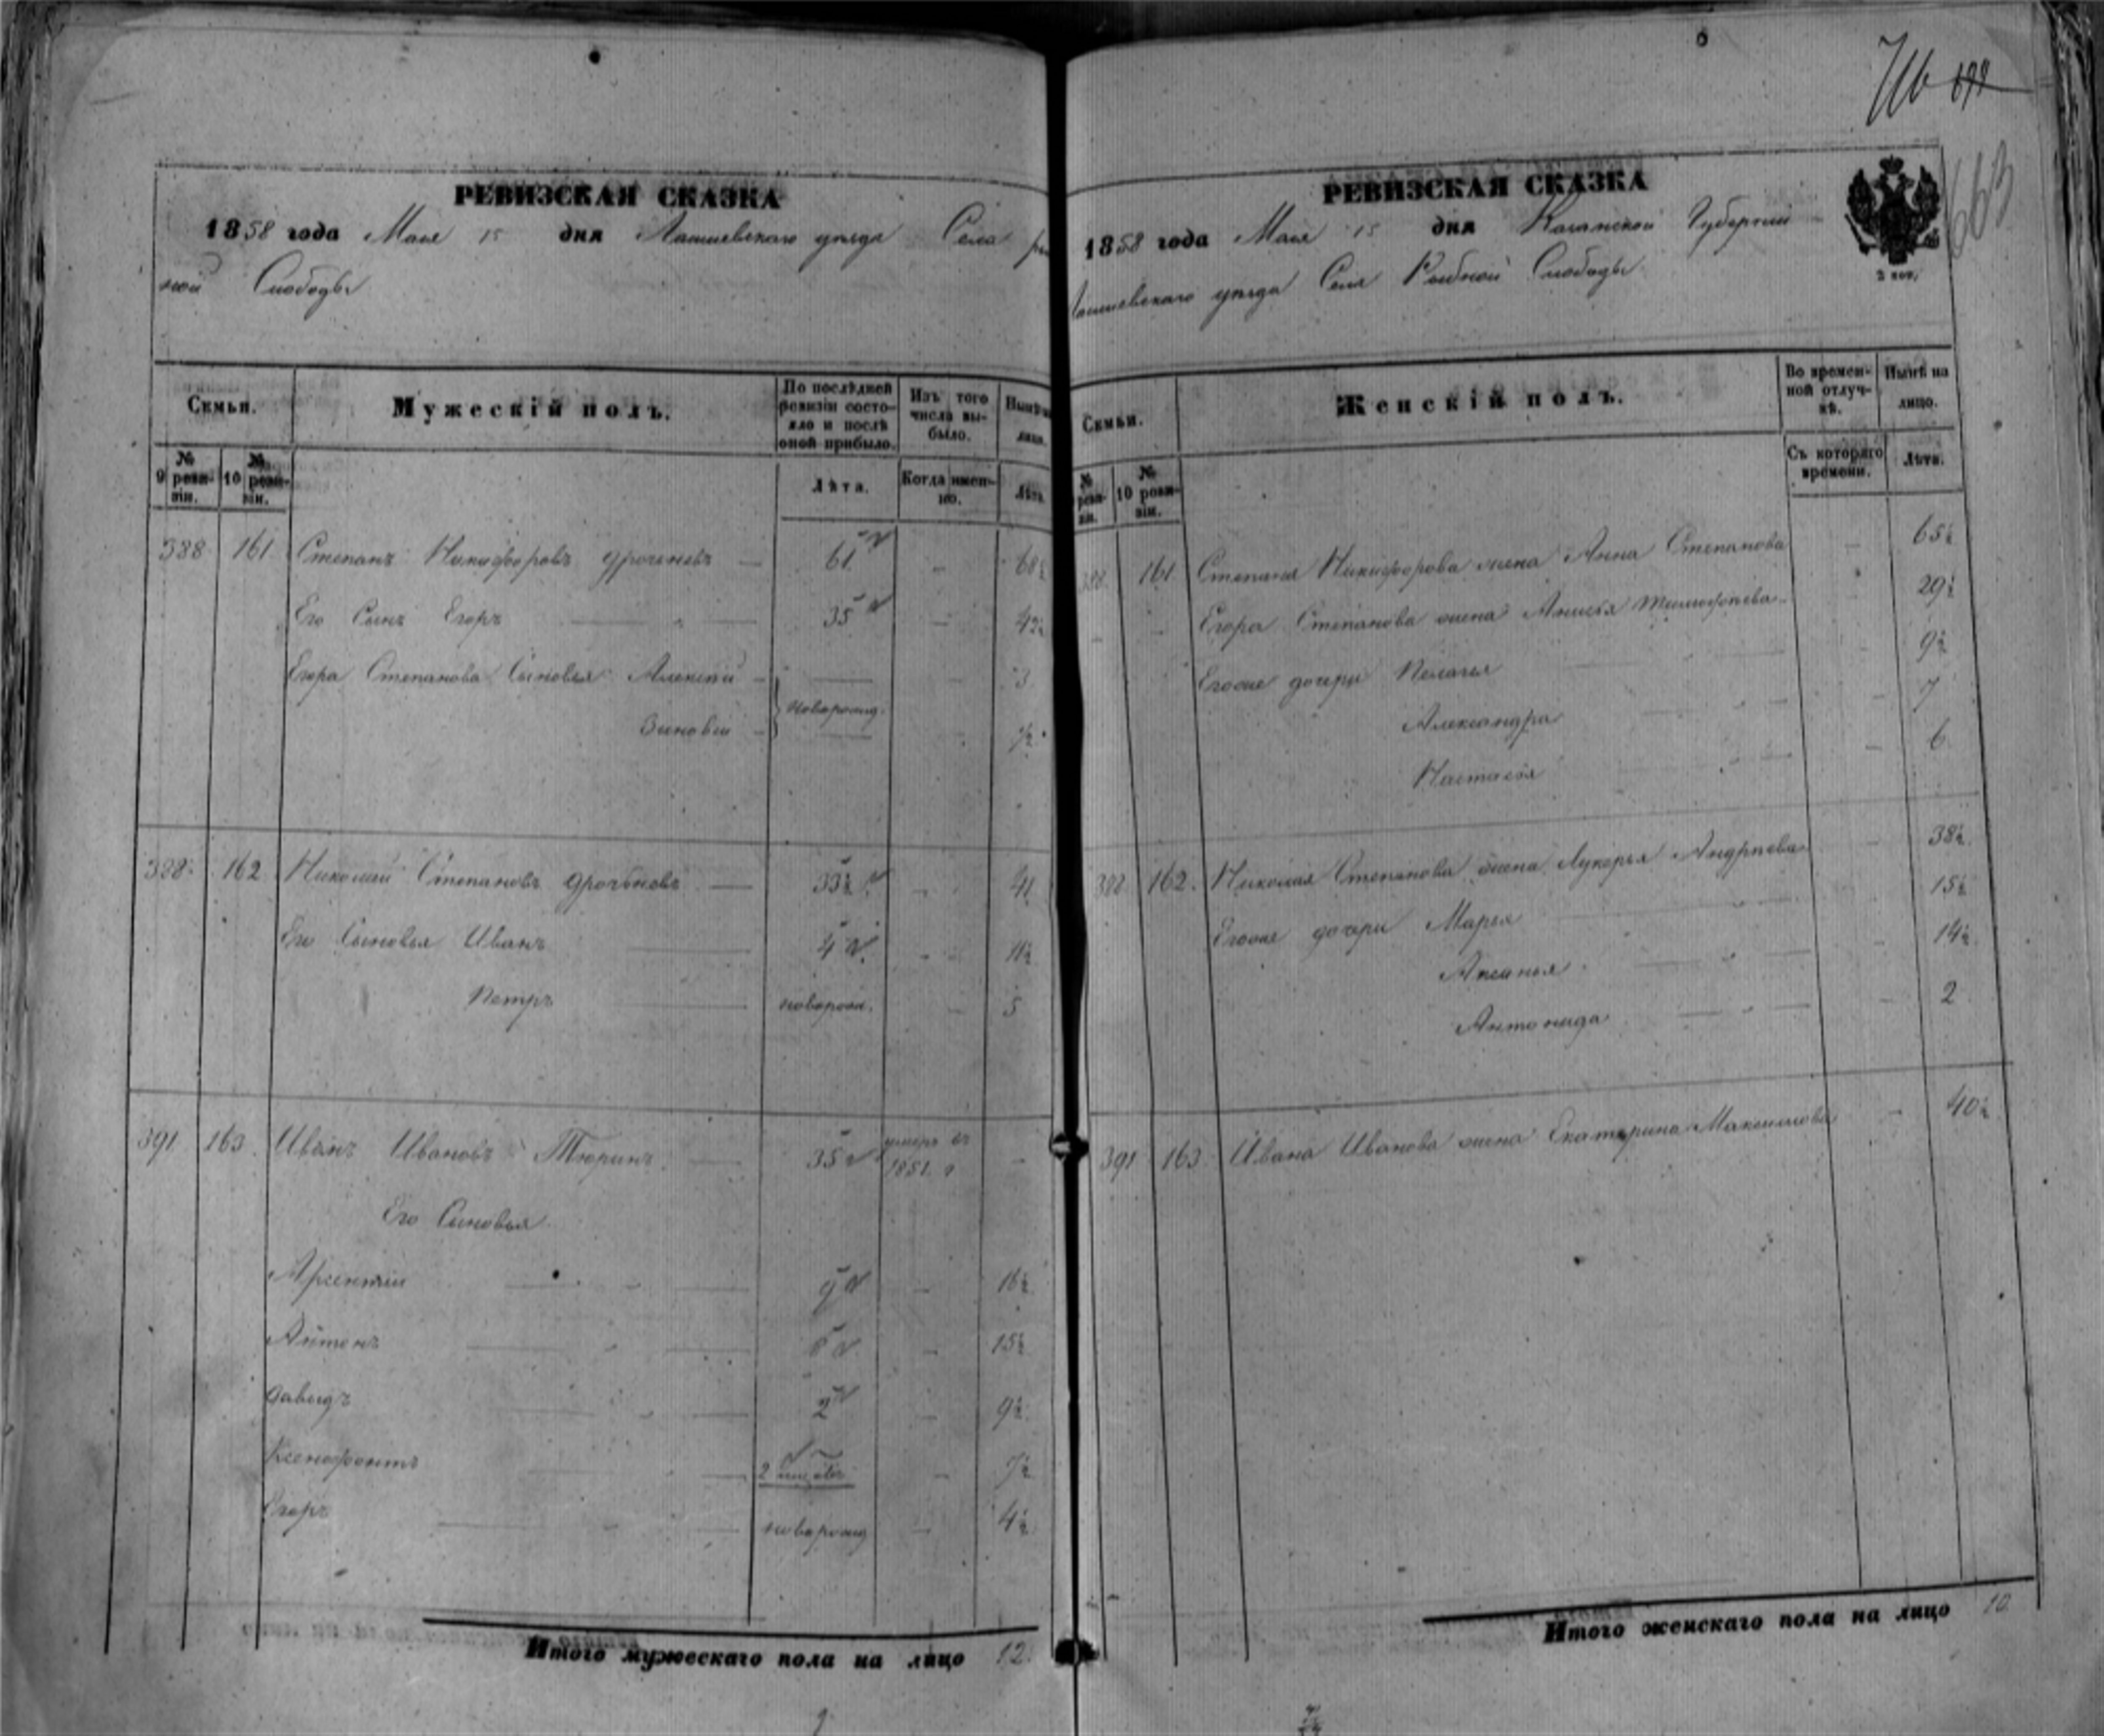 716
663
РЕВИЗСКАЯ СКАЗКА
1858 года Мая 15 дня Лаишевскаго уѣзда Села Рыб
ной Слободы
Семьи.
Мужескій полъ.
По послѣдней ревизіи состояло и послѣ оной прибыло.
Изъ того числа выбыло.
Нынѣ на лицо.
№ 9 ревизіи.
№ 10 ревизіи.
Лѣта.
Когда именно.
Лѣта.
388 161 Степанъ Никифоровъ Дрогоневъ — 61 - 68½
Его Сынъ Егоръ — 35 - 42½
Егора Степанова Сыновья Алексѣй - 3
новорожд.
Зиновій - ½
388 162 Николай Степановъ — 33½ - 41
Его Сыновья Иванъ 4 - 11½
Петръ новорож. - 5
391 163. Иванъ Ивановъ Тюринъ — 35 умеръ въ 1851. г -
Его Сыновья
Арсентій 9 - 16½
Антонъ 8 - 15½
Давыдъ 2 - 9½
Ксенофонтъ 2 - 7½
Егоръ новорожд - 4½
Итого мужескаго пола на лицо 12.
РЕВИЗСКАЯ СКАЗКА
1858 года Мая 15 дня Казанской Губерніи
Лаишевскаго уѣзда Села Рыбной Слободы
2 коп.
Семьи.
Женскій полъ.
Во временной отлучкѣ.
Нынѣ на лицо.
№ ревизіи.
№ 10 ревизіи.
Съ котораго времени.
Лѣта.
388 161 Степана Никифорова жена Анна Степанова — 65½
Егора Степанова жена Анисья Тимофѣева - 29½
Егоже дочери Пелагья - 9½
Александра - 7
Настасья - 6
388 162. Николая Степанова жена Лукерья Андрѣева - 38½
Егоже дочери Марья - 15½
Аксинья - 14½
Антонида - 2
391 163. Ивана Иванова жена Екатерина Максимова - 40½
Итого женскаго пола на лицо 10